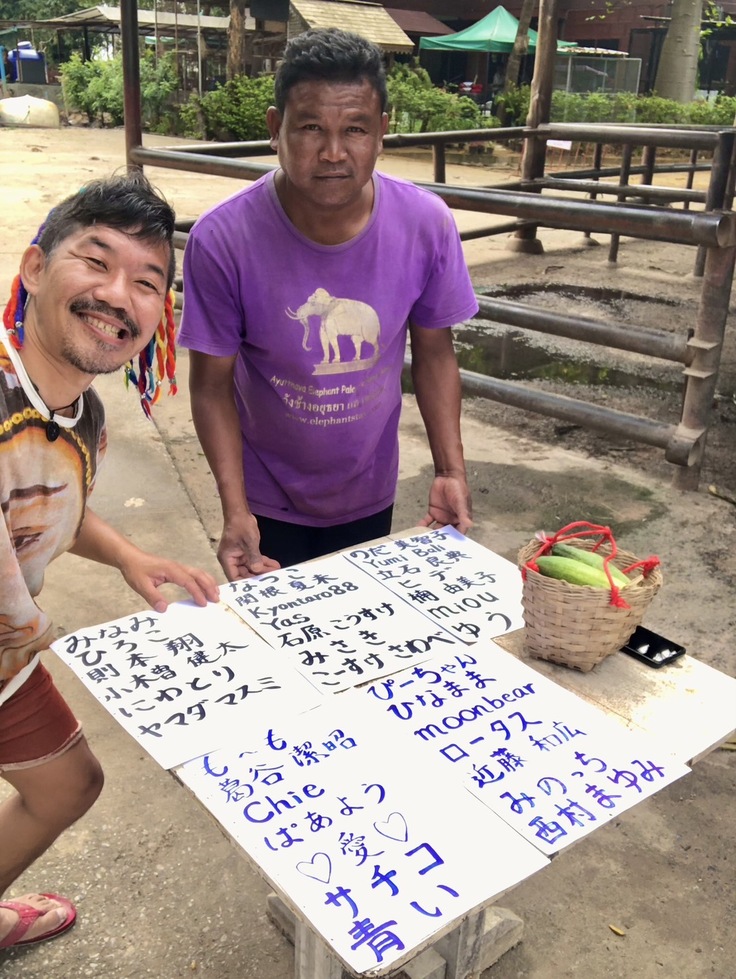 Ayutthaya Elephant Palace
www.elephantsta
みなみ
ひろこ
則本 翔
小木曽 健太
にわとり
ヤマダ マスミ
なつこ
関根 夏未
Kyontaro88
Yas
石原 こうすけ
みさき
こーすけ さわべ
のだ 美智子
Yumi Bali
立石 良典
ヒデ
楠 由美子
miou
ゆう
も〜も
葛谷 潔昭
Chie
ぱぁよう
♡愛♡
サチコ
青い
ぴーちゃん
ひなまま
moonbear
ロータス
近藤 和広
みのっち
西村 まゆみ